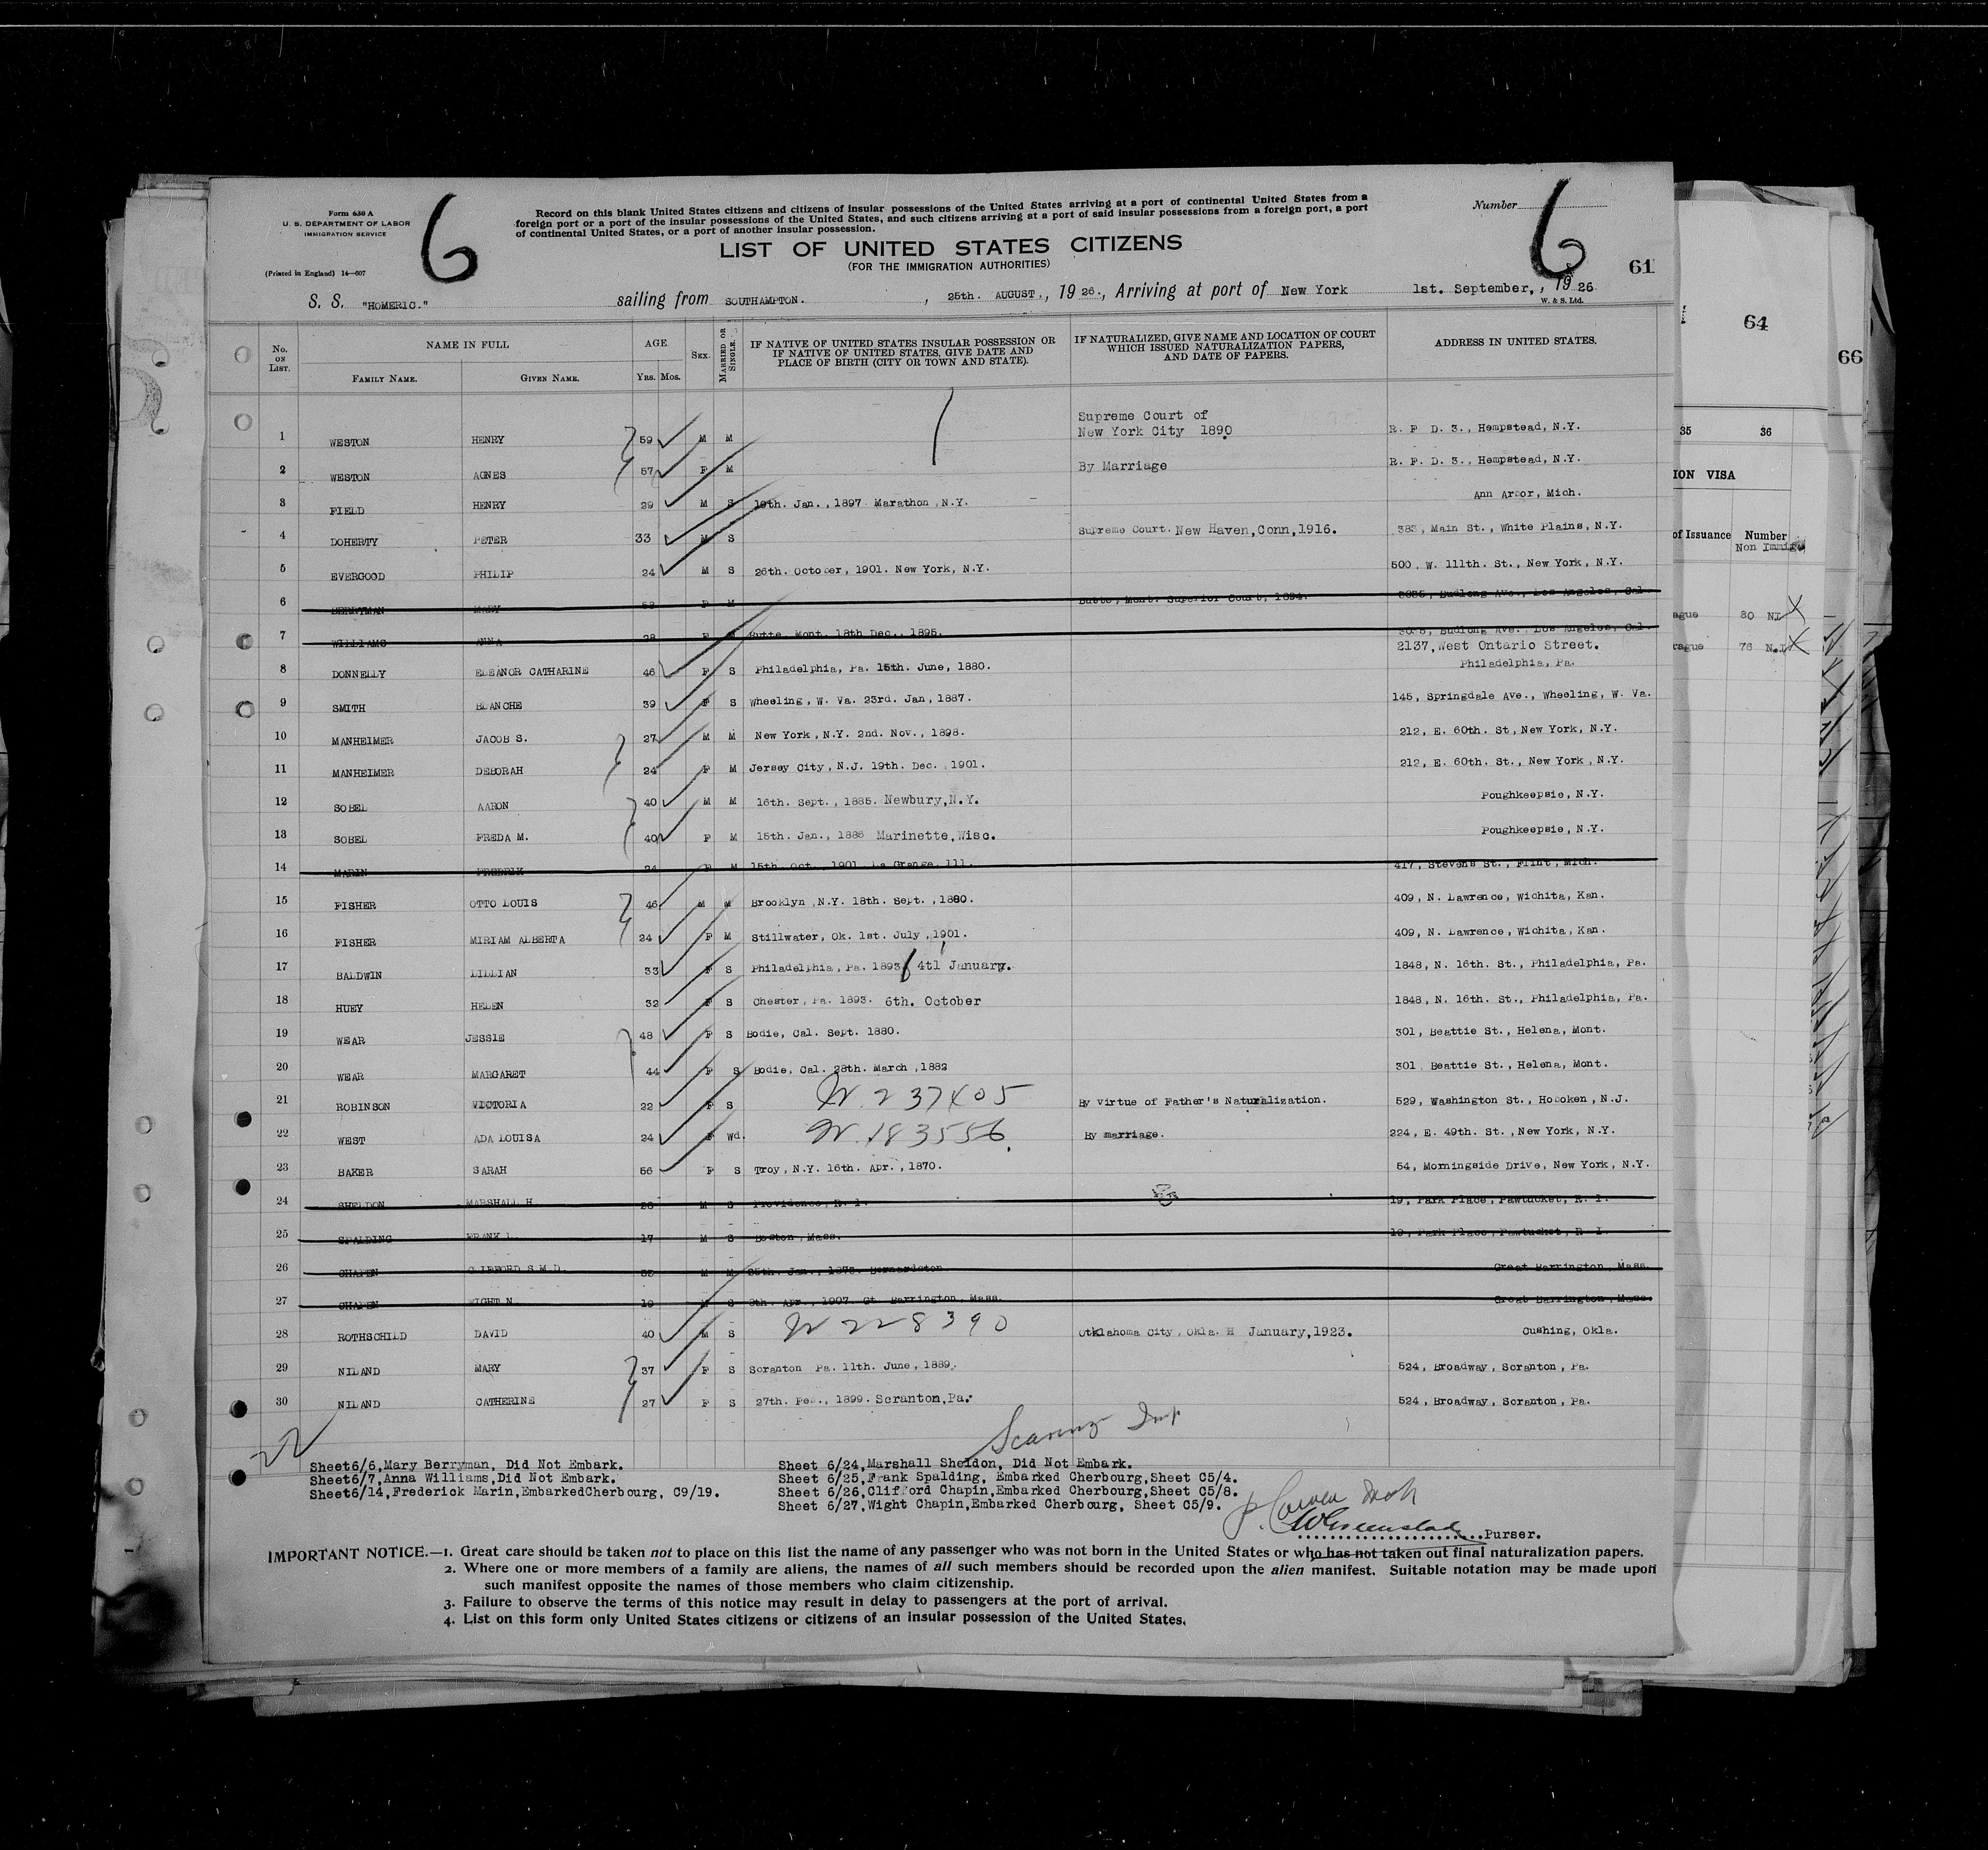 Form 630 A
U. S. DEPARTMENT OF LABOR
IMMIGRATION SERVICE
(Printed in England) 14—607
6
Record on this blank United States citizens and citizens of insular possessions of the United States arriving at a port of continental United States from a
foreign port or a port of the insular possessions of the United States, and such citizens arriving at a port of said insular possessions from a foreign port, a port
of continental United States, or a port of another insular possession.
LIST OF UNITED STATES CITIZENS
(FOR THE IMMIGRATION AUTHORITIES)
Number
6
61
S. S. "HOMERIC." sailing from SOUTHAMPTON. , 25th. AUGUST., 19 26., Arriving at port of New York 1st. September,, 19 26
W. & S. Ltd.
No. ON LIST. NAME IN FULL AGE. Sex. MARRIED OR SINGLE. IF NATIVE OF UNITED STATES INSULAR POSSESSION OR IF NATIVE OF UNITED STATES, GIVE DATE AND PLACE OF BIRTH (CITY OR TOWN AND STATE). IF NATURALIZED, GIVE NAME AND LOCATION OF COURT WHICH ISSUED NATURALIZATION PAPERS, AND DATE OF PAPERS. ADDRESS IN UNITED STATES.
FAMILY NAME. GIVEN NAME. Yrs. Mos.
1 WESTON HENRY 59 M M Supreme Court of New York City 1890 R. F D. 3., Hempstead, N.Y.
2 WESTON AGNES 57 F M By Marriage R. F. D. 3., Hempstead, N.Y.
3 FIELD HENRY 29 M S 19th. Jan., 1897 Marathon, N.Y. Ann Arbor, Mich.
4 DOHERTY PETER 33 M S Supreme Court. New Haven,Conn,1916. 383, Main St., White Plains, N.Y.
5 EVERGOOD PHILIP 24 M S 26th. October, 1901. New York, N.Y. 500, W. 111th. St., New York, N.Y.
6 BERRYMAN MARY F M Butte, Mont. Superior Court, 1894. Budlong Ave., Los Angeles, Cal.
7 WILLIAMS ANNA 28 F Butte, Mont. 18th Dec., 1895. Budlong Ave., Los Angeles, Cal.
8 DONNELLY ELEANOR CATHARINE 46 F S Philadelphia, Pa. 15th. June, 1880. 2137,West Ontario Street. Philadelphia, Pa.
9 SMITH BLANCHE 39 F S Wheeling, W. Va. 23rd. Jan, 1887. 145, Springdale Ave., Wheeling, W. Va.
10 MANHEIMER JACOB S. 27 M M New York, N.Y. 2nd. Nov., 1898. 212, E. 60th. St, New York, N.Y.
11 MANHEIMER DEBORAH 24 F M Jersey City, N.J. 19th. Dec. 1901. 212, E. 60th. St., New York, N.Y.
12 SOBEL AARON 40 M M 16th. Sept., 1885. Newbury,N.Y. Poughkeepsie, N.Y.
13 SOBEL FREDA M. 40 F M 15th. Jan., 1886 Marinette,Wisc. Poughkeepsie, N.Y.
14 MARIN FREDRIK 24 F M 15th. Oct., 1901. La Grange, Ill. 417, Stevens St., Flint, Mich.
15 FISHER OTTO LOUIS 46 M M Brooklyn, N.Y. 18th. Sept., 1880. 409, N. Lawrence, Wichita, Kan.
16 FISHER MIRIAM ALBERTA 24 F M Stillwater, Ok. 1st. July, 1901. 409, N. Lawrence, Wichita, Kan.
17 BALDWIN LILLIAN 33 F S Philadelphia, Pa. 1893 4th January. 1848, N. 16th. St., Philadelphia, Pa.
18 HUEY HELEN 32 F S Chester, Pa. 1893. 6th. October 1848, N. 16th. St., Philadelphia, Pa.
19 WEAR JESSIE 48 F S Bodie, Cal. Sept. 1880. 301, Beattie St., Helena, Mont.
20 WEAR MARGARET 44 F S Bodie, Cal. 28th. March, 1882 301 Beattie St., Helena, Mont.
21 ROBINSON VICTORIA 22 F S N. 237405 By virtue of Father's Naturalization. 529, Washington St., Hoboken, N.J.
22 WEST ADA LOUISA 24 F Wd. N. 183556. By marriage. 224, E. 49th. St., New York, N.Y.
23 BAKER SARAH 56 F S Troy, N.Y. 16th. Apr., 1870. 54, Morningside Drive, New York, N.Y.
24 SHELDON MARSHALL H. M S Providence, R. I. 19, Park Place, Pawtucket, R. I.
25 SPALDING FRANK L. 17 M S Boston, Mass. 19, Park Place, Pawtucket, R I.
26 CHAPEN CLIFFORD S.M.D. M M 25th. Jan., 1873. Bernardston Great Barrington, Mass.
27 CHAPEN WIGHT N. 19 M S 8th. Apr., 1907. Gt. Barrington, Mass. Great Barrington, Mass.
28 ROTHSCHILD DAVID 40 M S N 228390 Otklahoma City, Okla. H January,1923. Cushing, Okla.
29 NILAND MARY 37 F S Scranton Pa. 11th. June, 1889. 524, Broadway, Scranton, Pa.
30 NILAND CATHERINE 27 F S 27th. Feb., 1899. Scranton,Pa. 524, Broadway, Scranton, Pa.
22
Sheet6/6,Mary Berryman, Did Not Embark.
Sheet6/7,Anna Williams,Did Not Embark.
Sheet6/14,Frederick Marin,EmbarkedCherbourg, C9/19.
Sheet 6/24,Marshall Sheldon, Did Not Embark.
Sheet 6/25,Frank Spalding, Embarked Cherbourg,Sheet C5/4.
Sheet 6/26,Clifford Chapin,Embarked Cherbourg,Sheet C5/8.
Sheet 6/27,Wight Chapin,Embarked Cherbourg, Sheet C5/9.
Purser.
IMPORTANT NOTICE.—1. Great care should be taken not to place on this list the name of any passenger who was not born in the United States or who has not taken out final naturalization papers.
2. Where one or more members of a family are aliens, the names of all such members should be recorded upon the alien manifest. Suitable notation may be made upon
such manifest opposite the names of those members who claim citizenship.
3. Failure to observe the terms of this notice may result in delay to passengers at the port of arrival.
4. List on this form only United States citizens or citizens of an insular possession of the United States.
64
66
35 36
ION VISA
of Issuance Number
Non Immig
ague 80 NI
rague 76 N.I